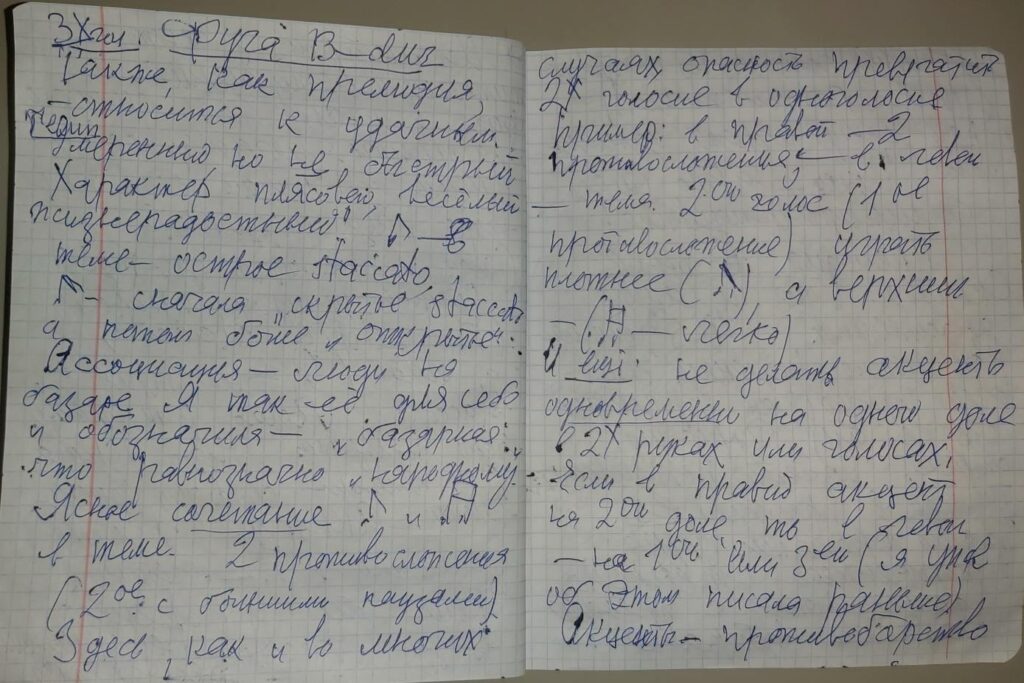 3х гол. Фуга B-dur
Также, как прелюдия,
относится к удачным.
Темп
умеренный, но не быстрый
Характер плясовой, весёлый
жизнерадостный. ♪ – в
теме – острое staccato,
♪ – сначала „скрытое staccato
а потом более „открытое".
Ассоциация – люди на
базаре. Я так её для себя
и обозначила – „базарная"
что равнозначно „народному".
Ясное сочетание ♪ и ♫
в теме. 2 противосложения
(2ое с большими паузами)
Здесь, как и во многих
случаях, опасность превратить
2х голосие в одноголосие
Пример: в правой – 2
противосложения, в левой
– тема. 2ой голос (1ое
противосложение) играть
плотнее (♪), а верхний
– (♫ – легко)
И ещё: не делать акценты
одновременно на одной доле
в 2х руках или голосах,
Если в правой акцент
на 2ой доле, то в левой
– на 1ой или 3ей (я уже
об этом писала раньше)
Акценты – противоборство